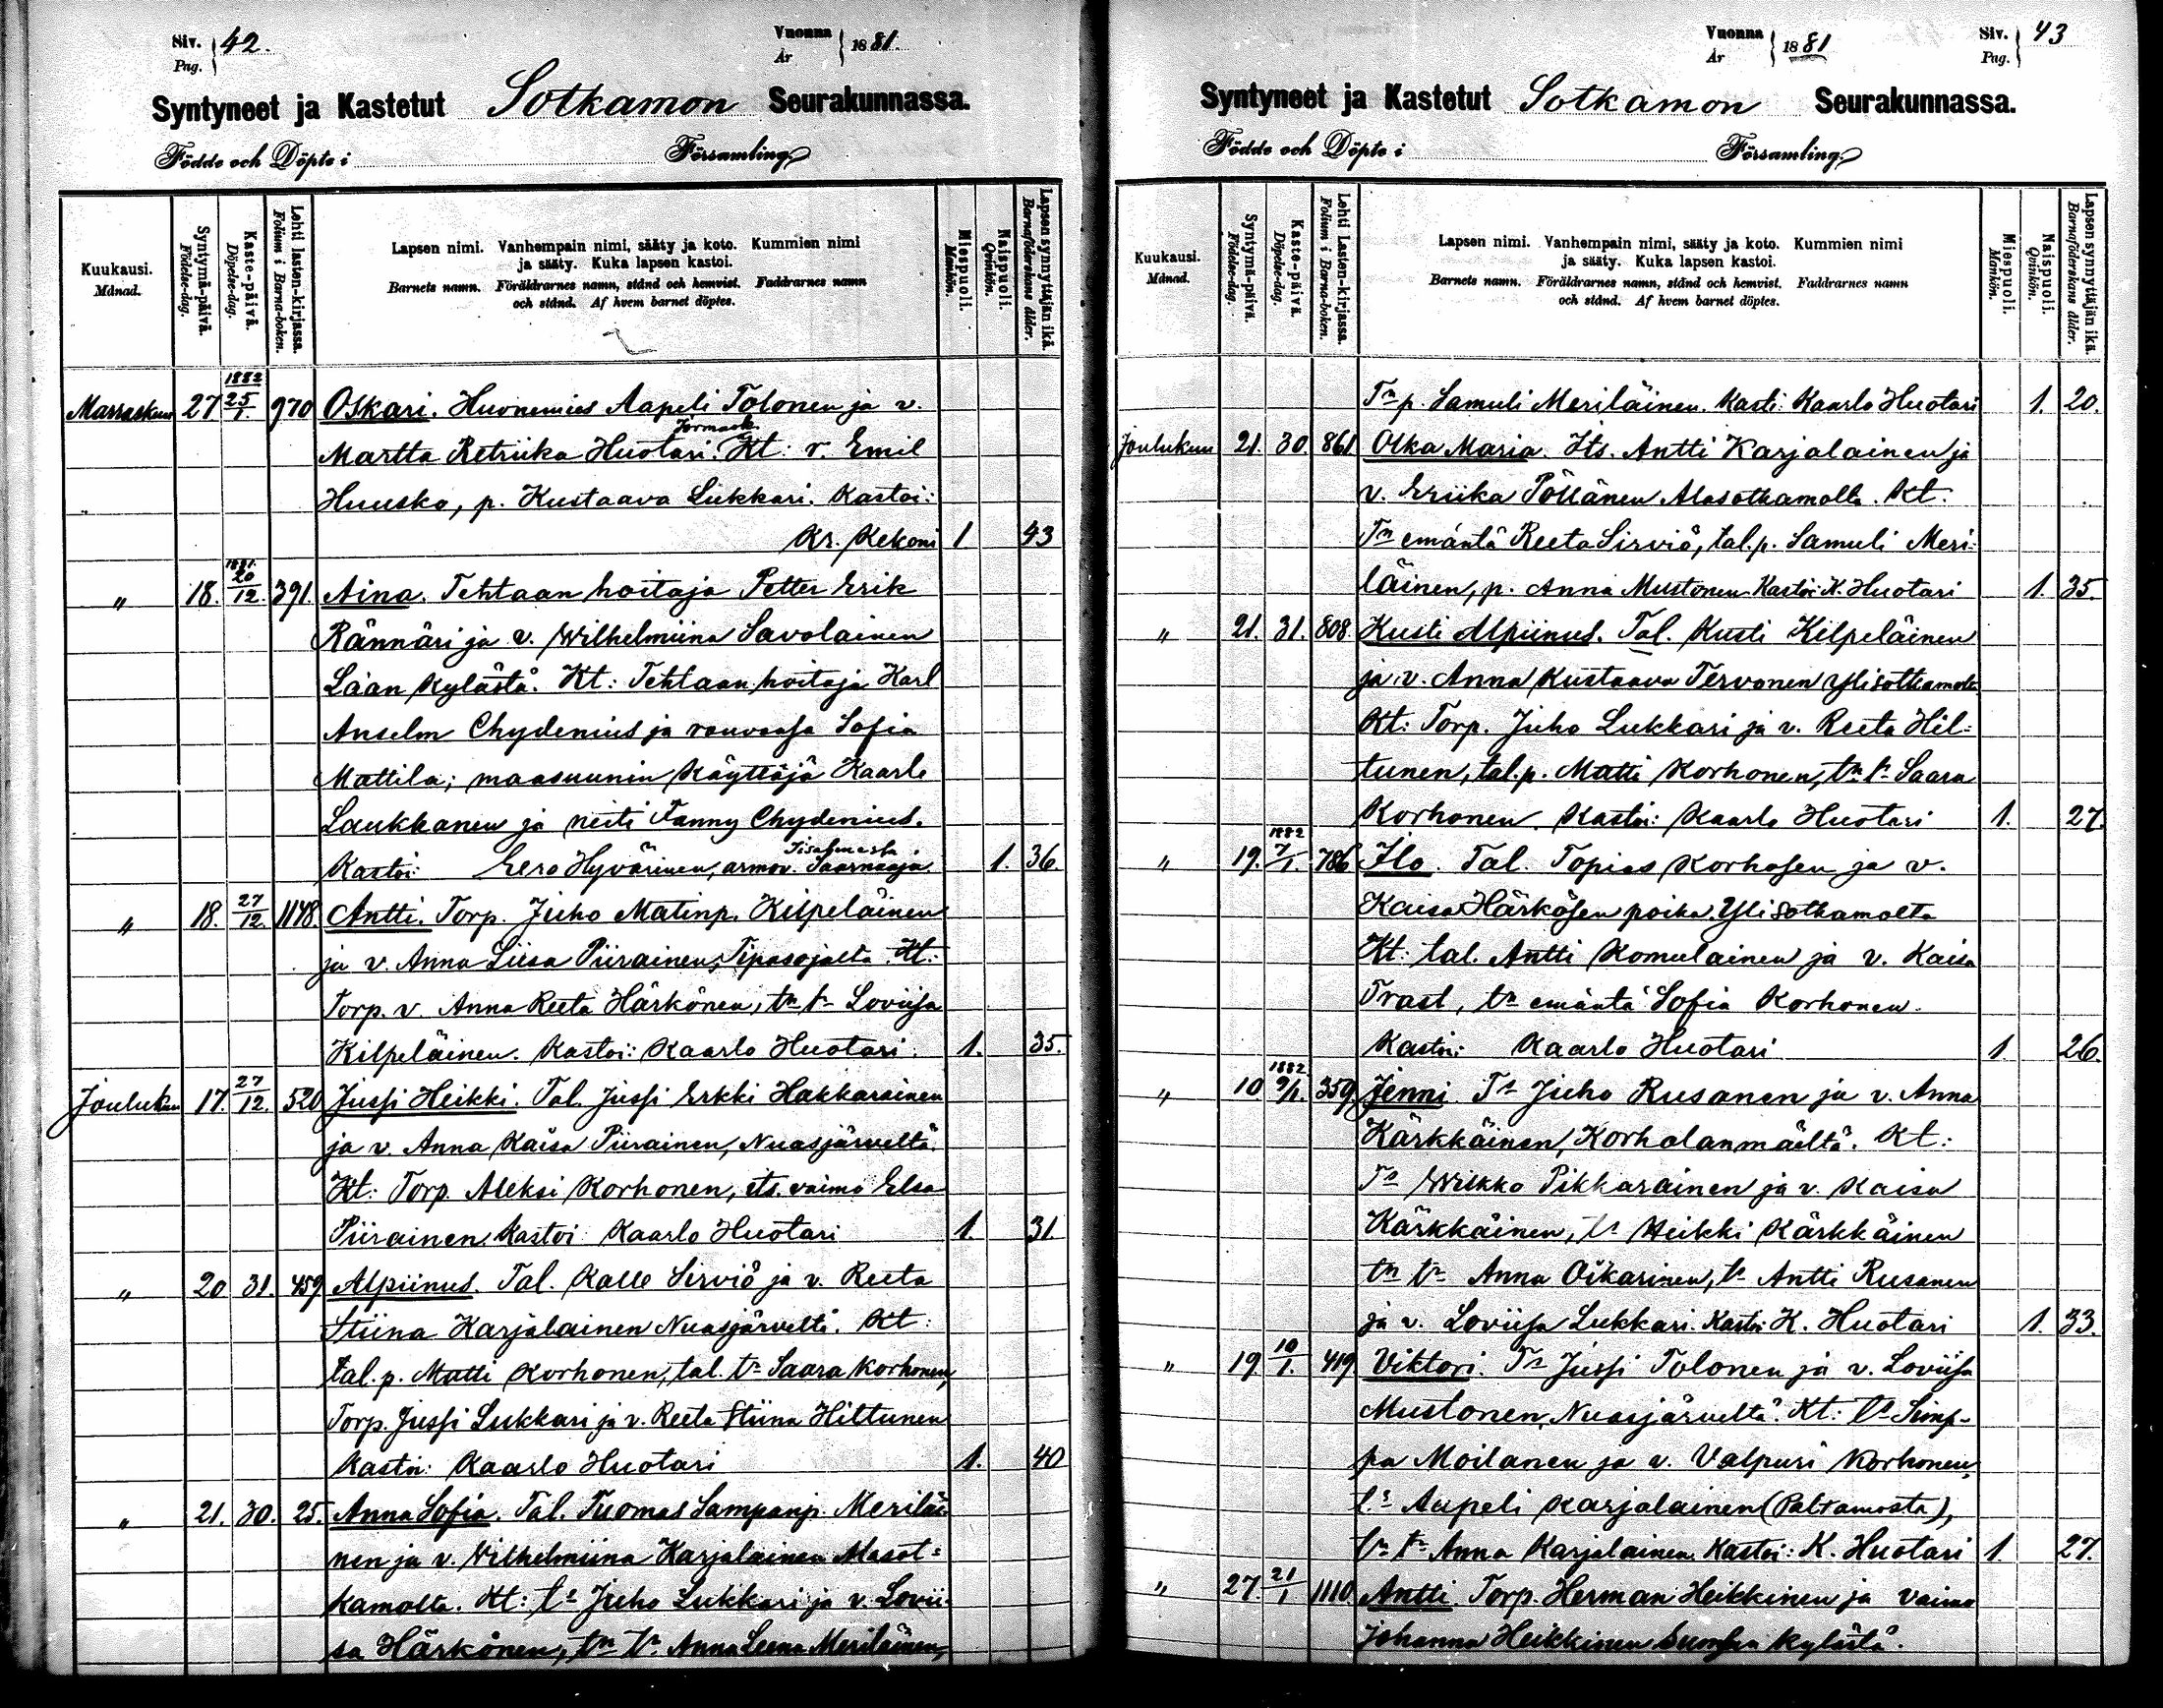 Siv. 42.
Pag.
Vuonna 1881.
År
Syntyneet ja Kastetut Sotkamon Seurakunnassa.
Födde och Döpte i Församling
Kuukausi.
Månad.
Syntymä-päivä.
Födelse-dag.
Kaste-päivä.
Döpelse-dag.
Lehti lasten-kirjassa.
Folium i Barna-boken.
Lapsen nimi. Vanhempain nimi, sääty ja koto. Kummien nimi
ja sääty. Kuka lapsen kastoi.
Barnets namn. Föräldrarnes namn, stånd och hemvist. Faddrarnes namn
och stånd. Af hvem barnet döptes.
Miespuoli.
Mankön.
Naispuoli.
Qvinkön.
Lapsen synnyttäjän ikä.
Barnaföderskans ålder.
1882
Marraskuu 27 25/1. 970 Oskari. Huonemies Aapeli Tolonen ja v.
Jormask.
Martta Retriika Huotari. Kt: r. Emil
Huusko, p. Kustaava Lukkari. Kastoi:
Kr. Kekoni 1 43
1881.
" 18. 20/12. 391. Aina. Tehtaan hoitaja Petter Erik
Rännäri ja v. Wilhelmiina Savolainen
Laan kylästä. Kt: Tehtaan hoitaja Karl
Anselm Chydenius ja rouvansa Sofia
Mattila; maasuunin käyttäjä Kaarle
Laukkanen ja neiti Fanny Chydenius.
Kastoi: Eero Hyvärinen, armov. Saarnaaja. 1. 36.
" 18. 27/12. 1148. Antti. Torp. Juho Matinp. Kilpeläinen
ja v. Anna Liisa Piirainen, Tipasojalta. Kt:
Torp. v. Anna Reeta Härkönen, tn tr Loviisa
Kilpeläinen. Kastoi: Kaarlo Huotari. 1. 35.
Joulukuu 17. 27/12. 520 Jussi Heikki. Tal. Jussi Erkki Hakkarainen
ja v. Anna Kaisa Piirainen, Nuasjärveltä.
Kt: Torp. Aleksi Korhonen, its. vaimo Elsa
Piirainen. Kastoi: Kaarlo Huotari 1. 31.
" 20 31. 459 Alpiinus. Tal. Kalle Sirviö ja v. Reeta
Stiina Karjalainen Nuasjärveltä. Kt:
tal. p. Matti Korhonen, tal. tr Saara Korhonen,
Torp. Jussi Lukkari ja v. Reeta Stiina Hiltunen
Kastoi: Kaarlo Huotari 1. 40
" 21. 30. 25. Anna Sofia. Tal. Tuomas Sampanp. Meriläi-
nen ja v. Vilhelmiina Karjalainen Alasot-
kamolta. Kt: ts Juho Lukkari ja v. Lovii-
sa Härkönen, tn tr Anna Leena Meriläinen,
Vuonna 1881
År
Siv. 43
Pag.
Syntyneet ja Kastetut Sotkamon Seurakunnassa.
Födde och Döpte i Församling
Kuukausi.
Månad.
Syntymä-päivä.
Födelse-dag.
Kaste-päivä.
Döpelse-dag.
Lehti Lasten-kirjassa.
Folium i Barna-boken.
Lapsen nimi. Vanhempain nimi, sääty ja koto. Kummien nimi
ja sääty. Kuka lapsen kastoi.
Barnets namn. Föräldrarnes namn, stånd och hemvist. Faddrarnes namn
och stånd. Af hvem barnet döptes.
Miespuoli.
Mankön.
Naispuoli.
Qvinkön.
Lapsen synnyttäjän ikä.
Barnaföderskans ålder.
Tn p. Samuli Meriläinen. Kasti: Kaarlo Huotari 1. 20.
Joulukuu 21. 30. 861 Olka Maria. Its. Antti Karjalainen ja
v. Eriika Pöllänen Alasotkamolta. Kt.
Tn emäntä Reeta Sirviö, tal. p. Samuli Meri-
läinen, p. Anna Mustonen Kastoi K. Huotari 1. 35.
" 21. 31. 808. Kusti Alpiinus. Tal. Kusti Kilpeläinen
ja v. Anna Kustaava Tervonen Ylisotkamolta
Kt: Torp. Juho Lukkari ja v. Reeta Hil-
tunen, tal. p. Matti Korhonen, tn tr Saara
Korhonen. Kastoi: Kaarlo Huotari 1. 27.
1882
" 19. 7/1. 786 Ilo. Tal. Topias Korhosen ja v.
Kaisa Härkösen poika, Ylisotkamolta
Kt: tal. Antti Komulainen ja v. Kaisa
Trast, tn emäntä Sofia Korhonen.
Kastoi: Kaarlo Huotari 1. 26.
1882
" 10 9/1. 359 Jenni Ts Juho Rusanen ja v. Anna
Kärkkäinen, Korholanmäeltä. Kt:
Ts Wilkko Pikkarainen ja v. Kaisa
Kärkkäinen, ts Heikki Kärkkäinen
tn tr Anna Oikarinen, ts Antti Rusanen
ja v. Loviisa Lukkari. Kastoi K. Huotari 1. 33.
" 19. 10/1. 419 Viktori. Ts Jussi Tolonen ja v. Loviisa
Mustonen, Nuasjärveltä. Kt: ts Simp-
pa Moilanen ja v. Valpuri Korhonen,
ts Aapeli Karjalainen (Paltamosta),
tn tr Anna Karjalainen. Kastoi: K. Huotari 1. 27.
" 27. 21/1 1110 Antti. Torp. Herman Heikkinen ja vaimo
Johanna Heikkinen kylästä.